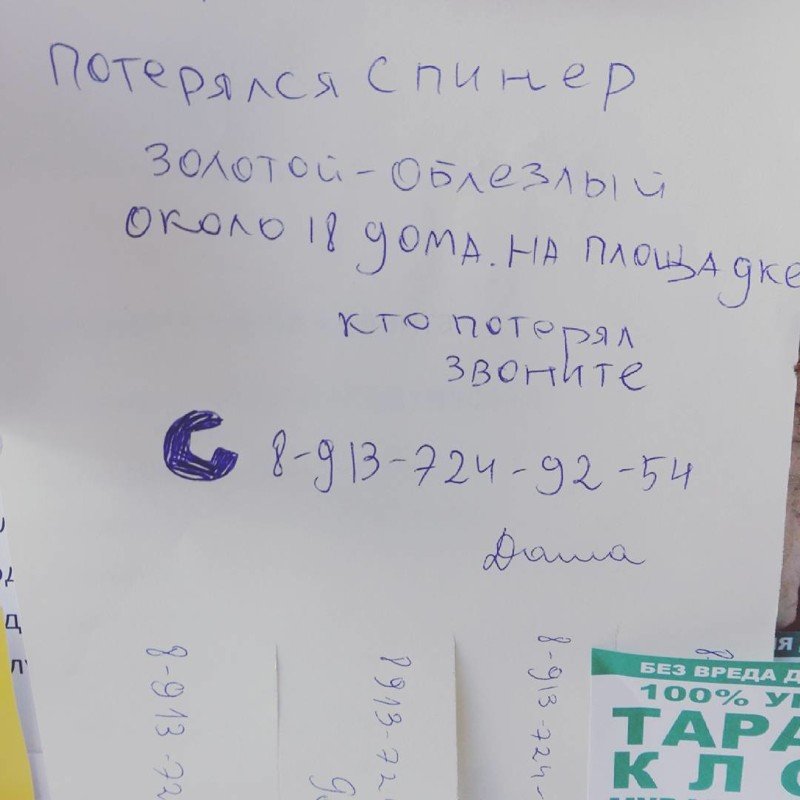 ПОТЕРЯЛСЯ СПИНЕР
ЗОЛОТОЙ-ОБЛЕЗЛЫЙ
ОКОЛО 18 ДОМА. НА ПЛОЩАДКЕ
КТО ПОТЕРЯЛ
ЗВОНИТЕ
8-913-724-92-54
Даша
8-913-72
8913-72
8-913-724-
8-
БЕЗ ВРЕДА Д
100% У
ТАРА
КЛО